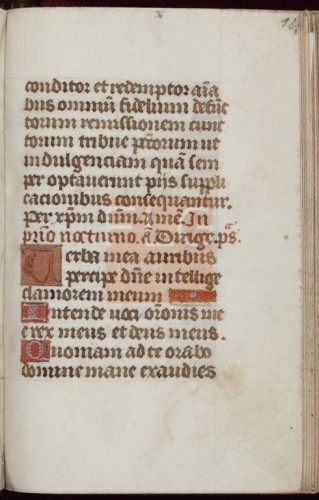 conditor et redemptor aīa
bus omniū fidelium defūc
torum remissionem cunc
torum tribue pctorum ut
indulgenciam quā sem
per optauerunt pijs suppli
cacionibus consequantur.
Per xpm dnm. Amē. In
prio nocturno. ā. Dirige. ps.
Uerba mea auribus
percipe dne intellige
clamorem meum
Intende uoci oronis me
e rex meus et deus meus.
Quoniam ad te orabo
domine mane exaudies